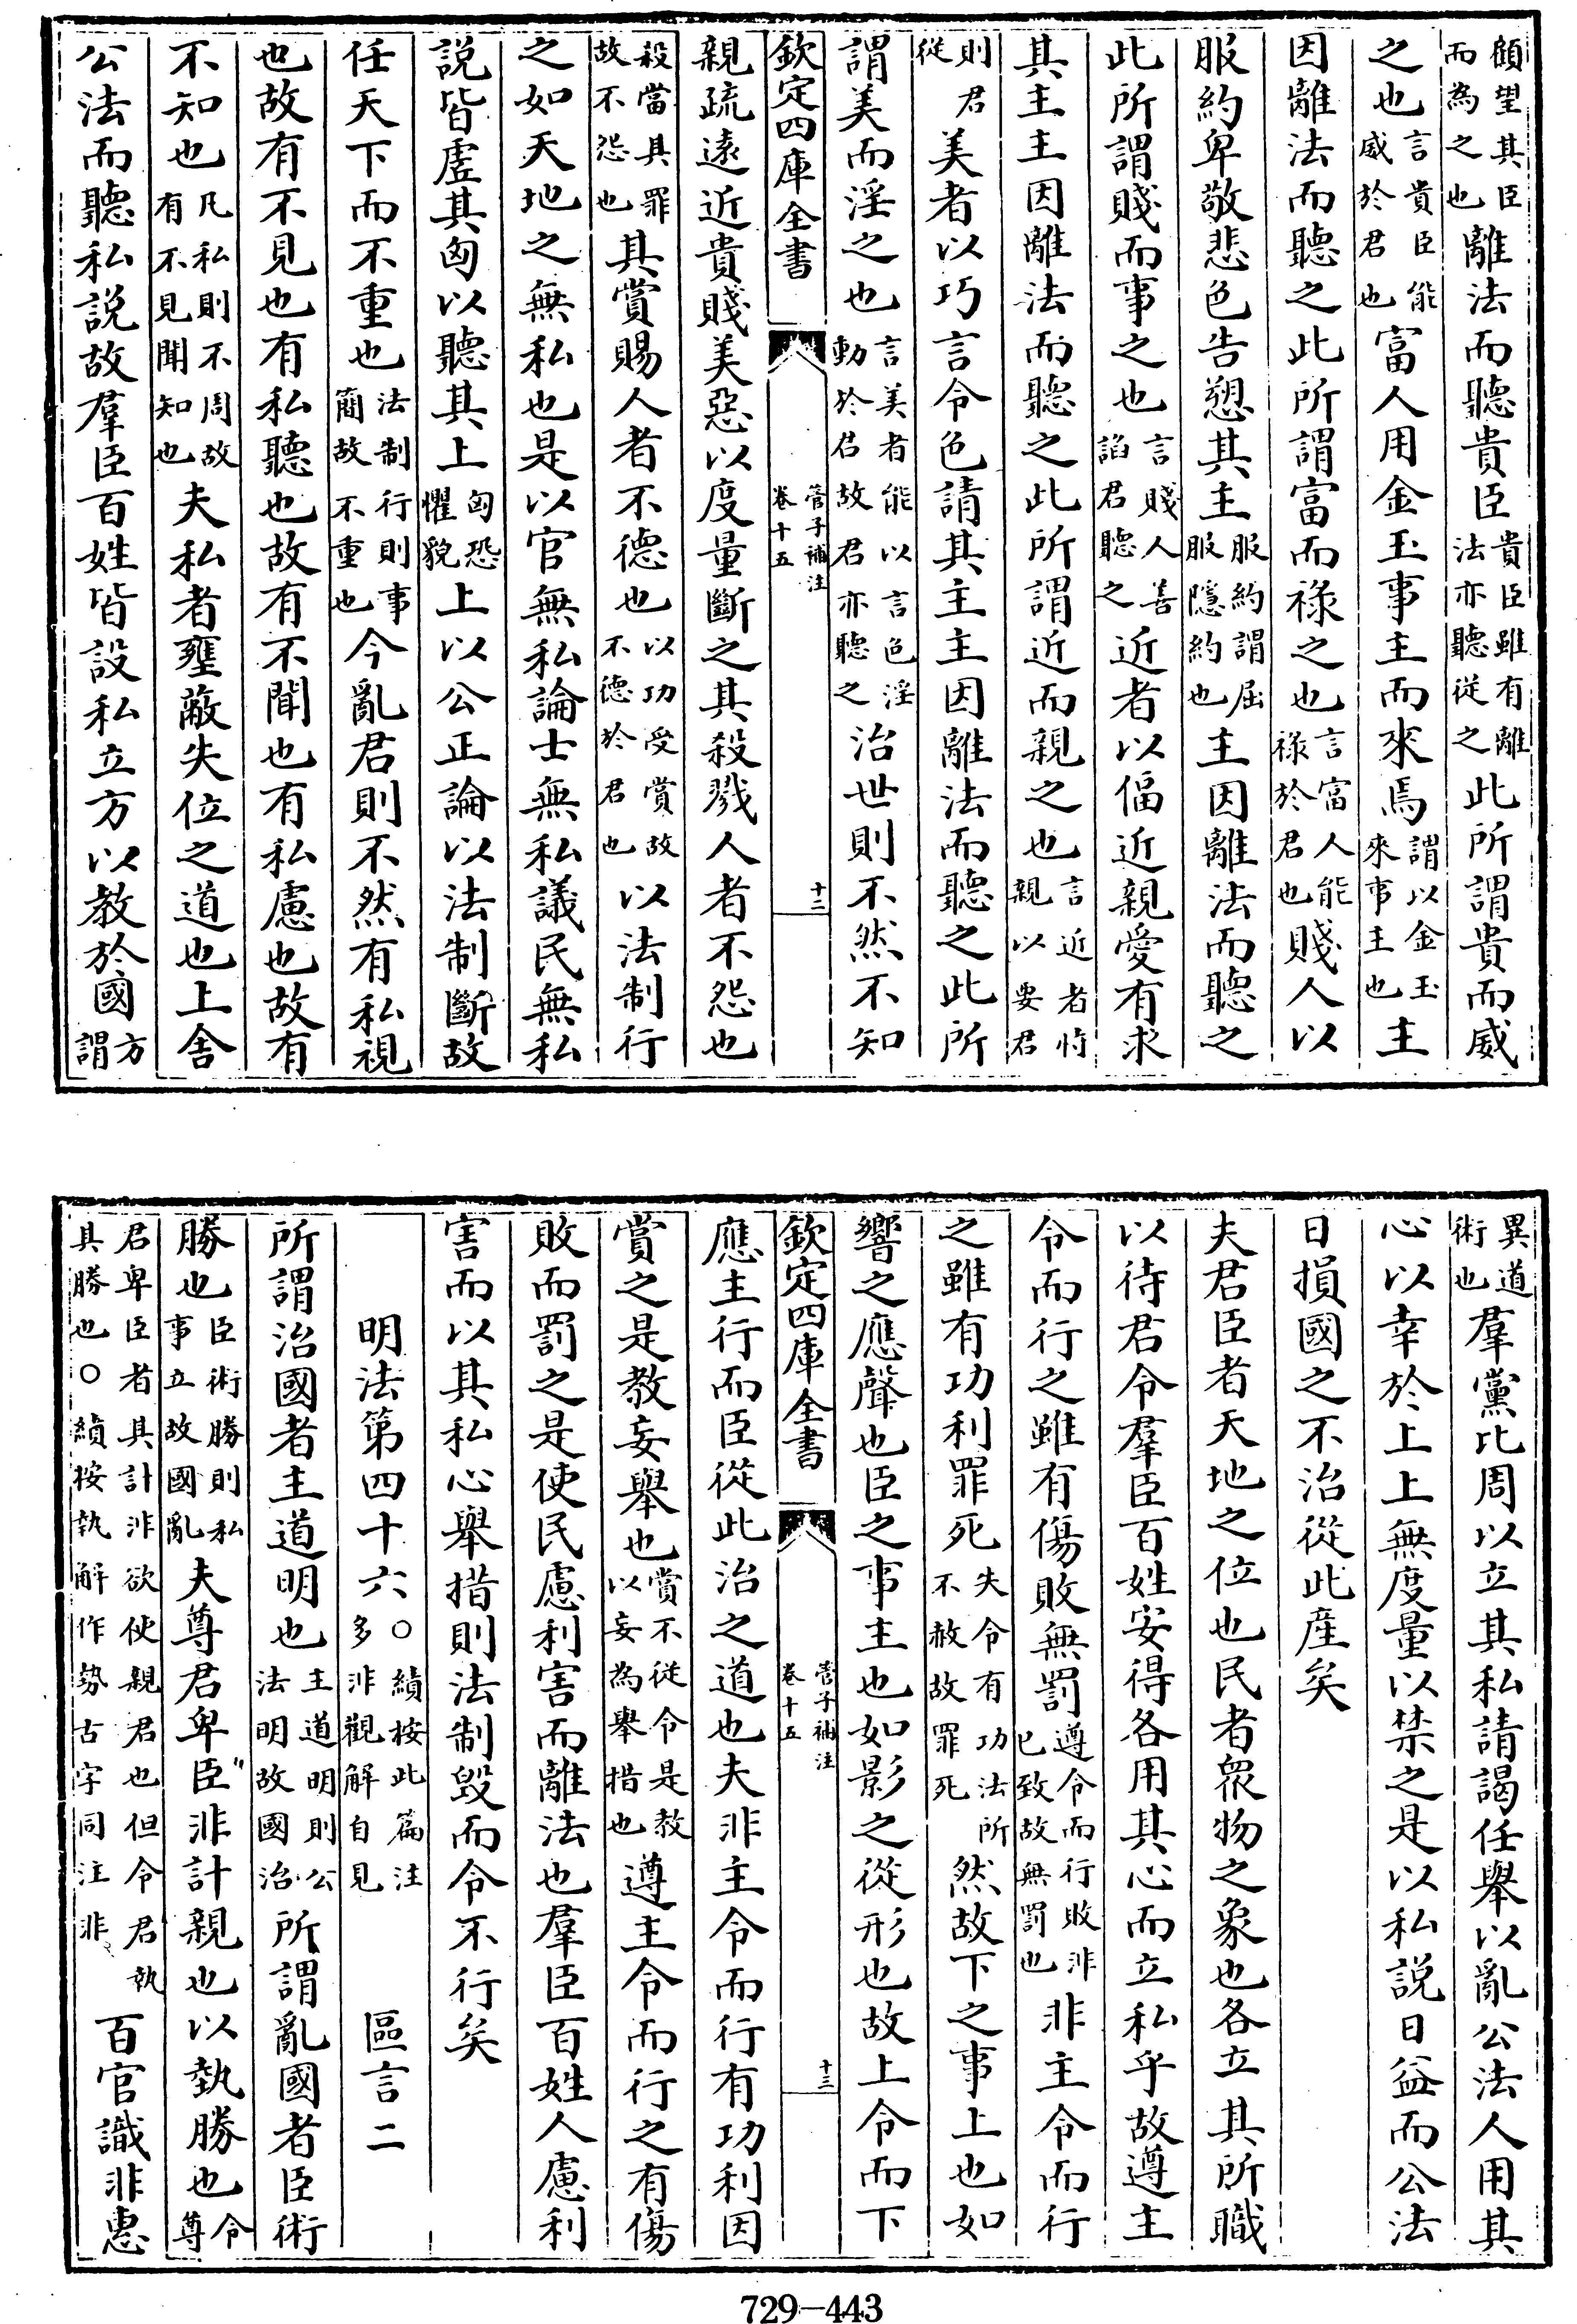 顧望其臣而為之也離法而聽貴臣貴臣雖有離法亦聽從之此所謂貴而威
之也言貴臣能威於君也富人用金玉事主而來焉謂以金玉來事主也主
因離法而聽之此所謂富而祿之也言富人能祿於君也賤人以
服約卑敬悲色告愬其主服約謂屈服隱約也主因離法而聽之
此所謂賤而事之也言賤人善諂君聽之近者以偪近親愛有求
其主主因離法而聽之此所謂近而親之也言近者恃親以要君
則君從美者以巧言令色請其主主因離法而聽之此所
謂美而淫之也言美者能以言色淫動於君故君亦聽之治世則不然不知
欽定四庫全書 管子補注卷十五 十二
親疏遠近貴賤美惡以度量斷之其殺戮人者不怨也
殺當其罪故不怨也其賞賜人者不德也以功受賞故不德於君也以法制行
之如天地之無私也是以官無私論士無私議民無私
說皆虛其匈以聽其上匈恐懼貌上以公正論以法制斷故
任天下而不重也法制行則事簡故不重也今亂君則不然有私視
也故有不見也有私聽也故有不聞也有私慮也故有
不知也凡私則不周故有不見聞知也夫私者壅蔽失位之道也上舍
公法而聽私說故羣臣百姓皆設私立方以教於國方謂
異道術也羣黨比周以立其私請謁任舉以亂公法人用其
心以幸於上上無度量以禁之是以私說日益而公法
日損國之不治從此產矣
夫君臣者天地之位也民者衆物之象也各立其所職
以待君令羣臣百姓安得各用其心而立私乎故遵主
令而行之雖有傷敗無罰遵令而行敗非已致故無罰也非主令而行
之雖有功利罪死失令有功法所不赦故罪死然故下之事上也如
響之應聲也臣之事主也如影之從形也故上令而下
欽定四庫全書 管子補注卷十五 十三
應主行而臣從此治之道也夫非主令而行有功利因
賞之是教妄舉也賞不從令是教以妄為舉措也遵主令而行之有傷
敗而罰之是使民慮利害而離法也羣臣百姓人慮利
害而以其私心舉措則法制毀而令不行矣
明法第四十六○績按此篇注多非觀解自見 區言二
所謂治國者主道明也主道明則公法明故國治所謂亂國者臣術
勝也臣術勝則私事立故國亂夫尊君卑臣非計親也以埶勝也令尊
君卑臣者其計非欲使親君也但令君執其勝也○績按執解作勢古字同注非百官識非惠
729-443